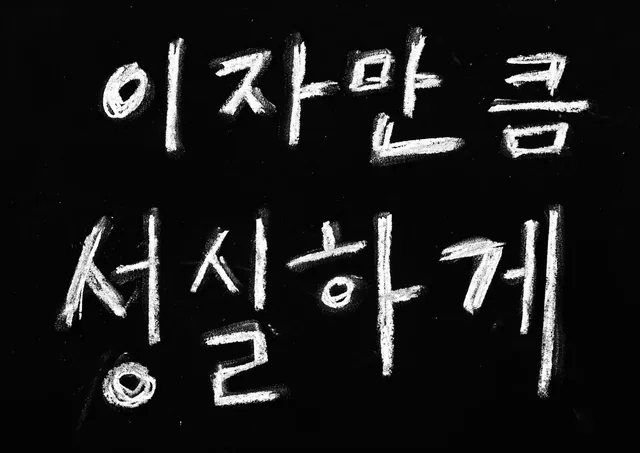 이자만큼
성실하게